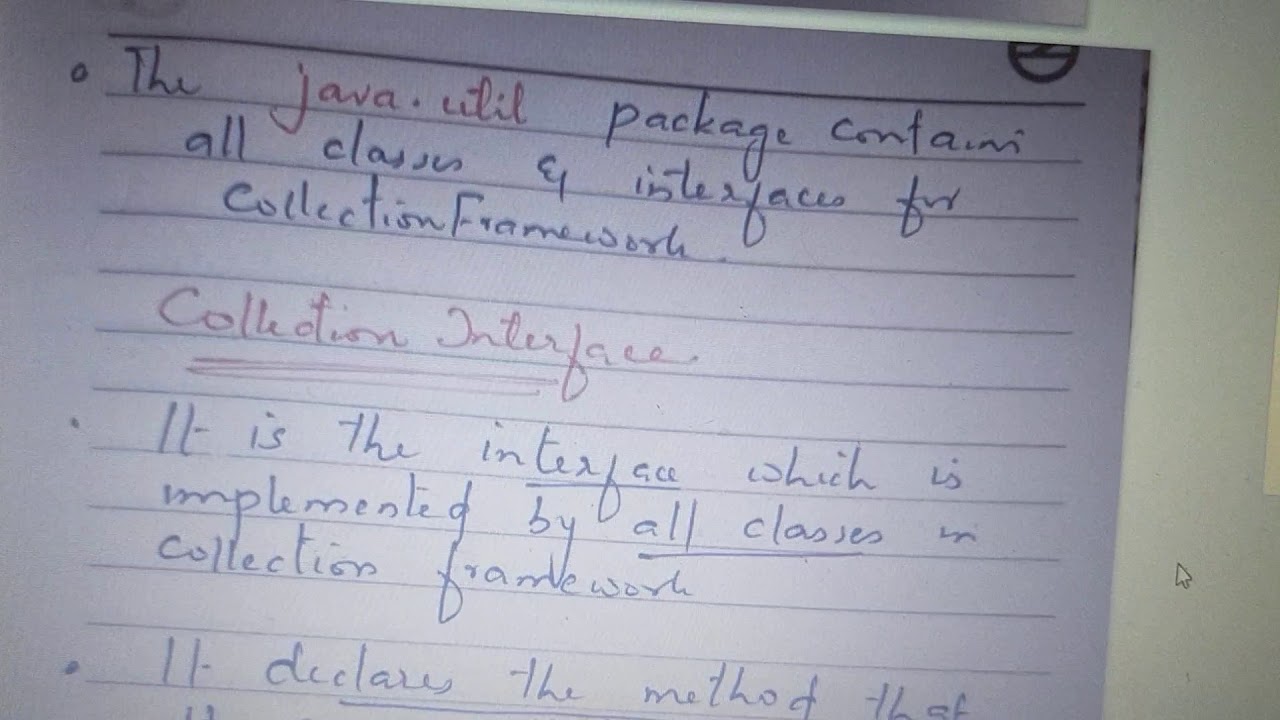 The java.util package contains
all classes & interfaces for
Collection Framework.
Collection Interface.
It is the interface which is
implemented by all classes in
collection framework
It declares the method that